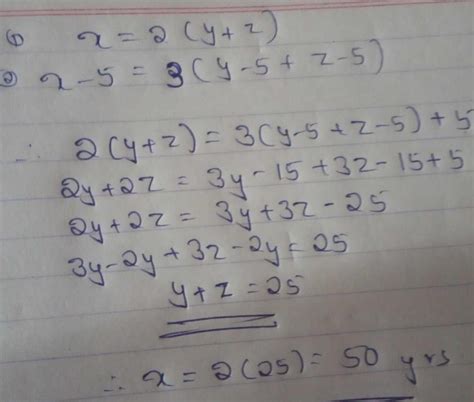 ① x = 2 (y+z)
② x-5 = 3(y-5+z-5)
∴ 2(y+z) = 3(y-5+z-5)+5
2y+2z = 3y-15+3z-15+5
2y+2z = 3y+3z-25
3y-2y+3z-2y=25
y+z=25
∴ x = 2(25) = 50 yrs